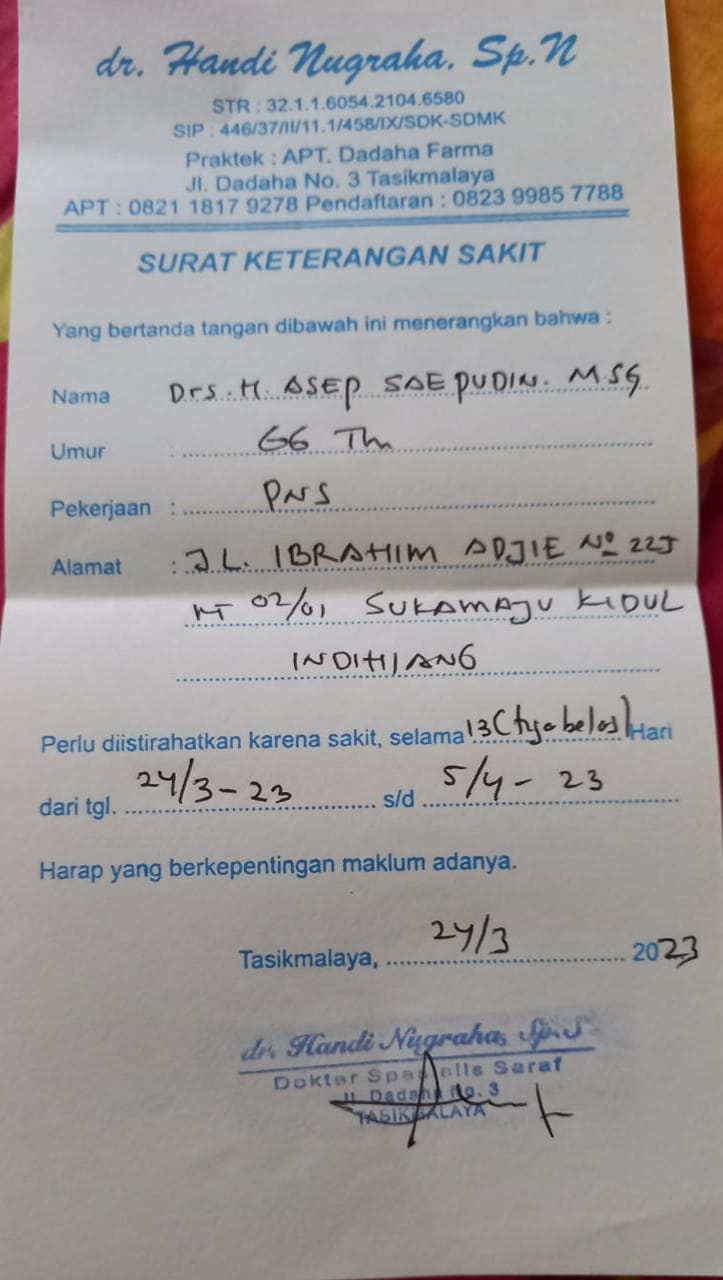 dr. Handi Nugraha. Sp.N
STR : 32.1.1.6054.2104.6580
SIP : 446/37/II/11.1/458/IX/SDK-SDMK
Praktek : APT. Dadaha Farma
Jl. Dadaha No. 3 Tasikmalaya
APT : 0821 1817 9278 Pendaftaran : 0823 9985 7788
SURAT KETERANGAN SAKIT
Yang bertanda tangan dibawah ini menerangkan bahwa :
Nama Drs. H. ASEP SAEPUDIN. MSG
Umur : 66 Th
Pekerjaan : PNS
Alamat : JL. IBRAHIM ADJIE No 225
RT 02/01 SUKAMAJU KIDUL
INDIHIANG
Perlu diistirahatkan karena sakit, selama 13 (tiga belas) Hari
dari tgl. 24/3-23 s/d 5/4-23
Harap yang berkepentingan maklum adanya.
Tasikmalaya, 24/3 2023
dr. Handi Nugraha, Sp.S
Dokter Spesialis Saraf
Jl. Dadaha No. 3
TASIKMALAYA